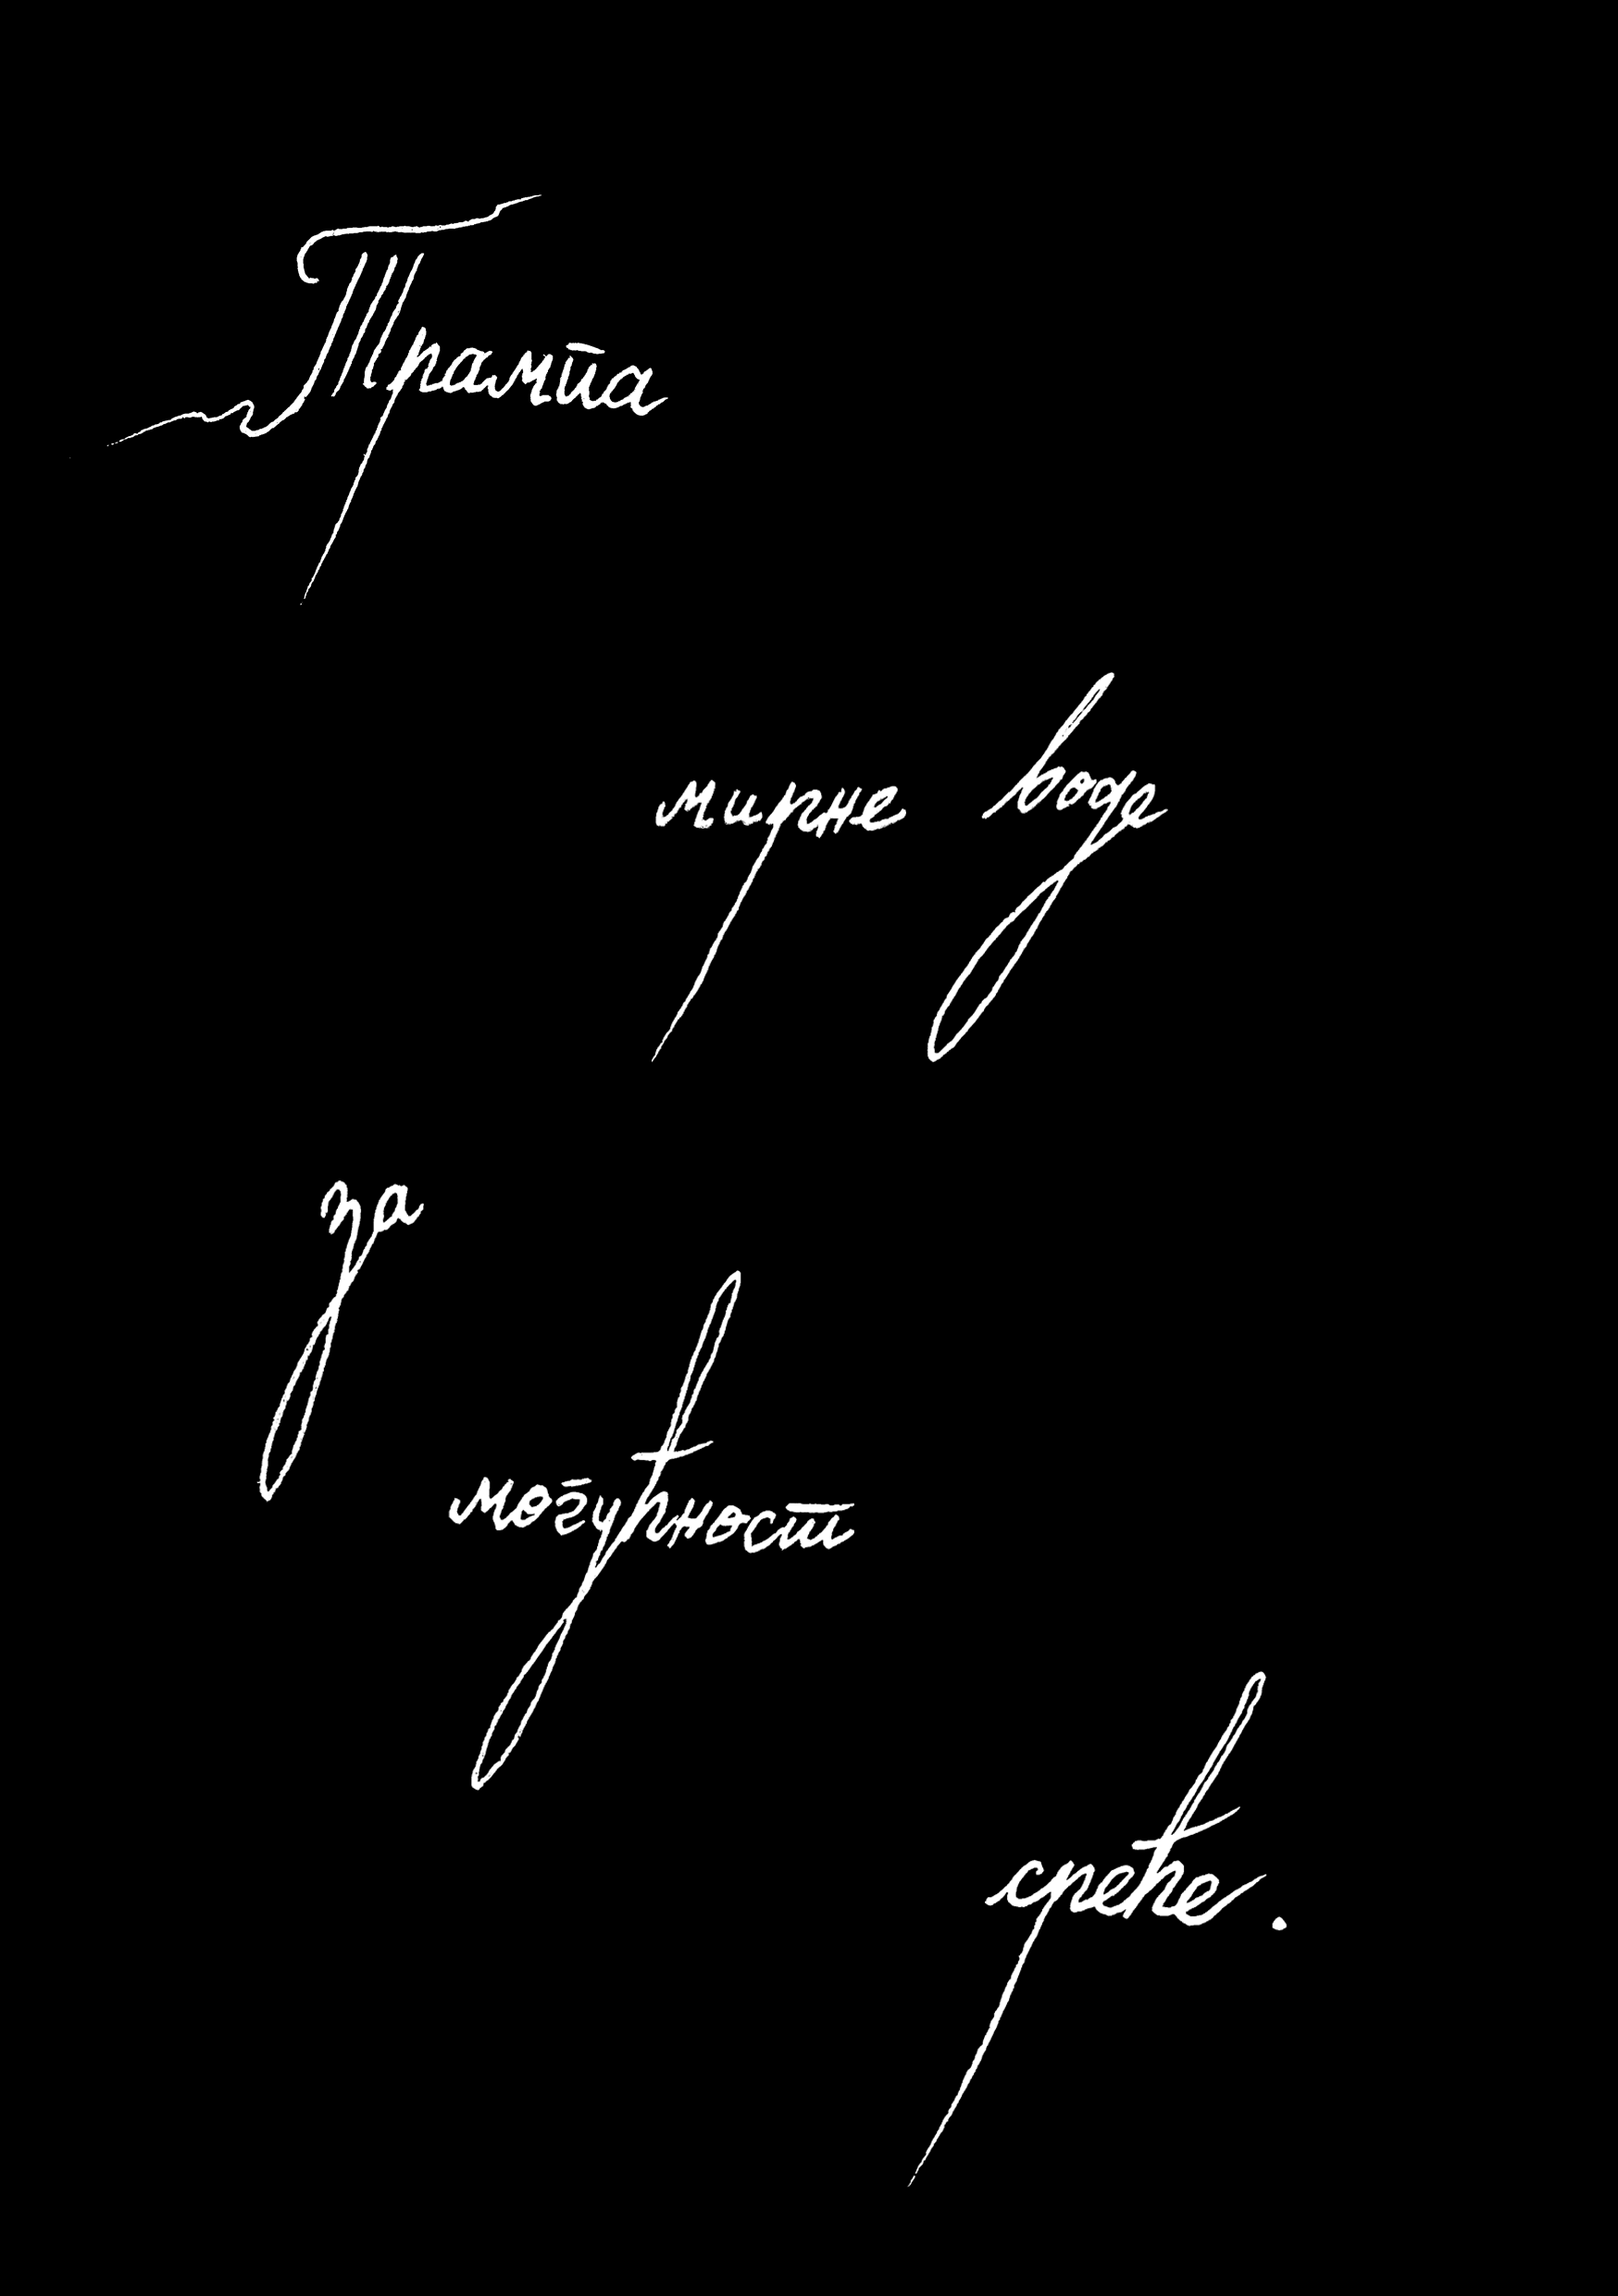 Трампа
мирне воде
за
могућност
среће.